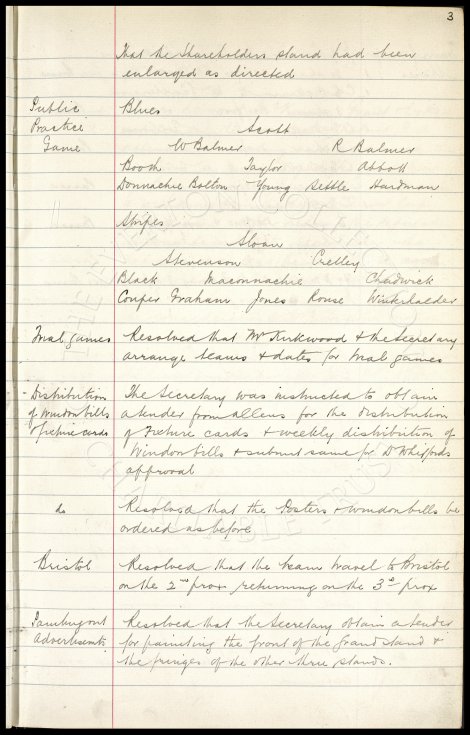 3
That the Shareholders stand had been
enlarged as directed
Public Blues
Practice Scott
Game W Balmer R Balmer
Booth Taylor Abbott
Donnachie Bolton Young Settle Hardman
" Stripes
Sloan
Stevenson Crelley
Black Maconnachie Chadwick
Couper Graham Jones Rouse Winterhalder
Trial games Resolved that Mr Kirkwood & the Secretary
arrange teams & dates for trial games
Distribution The Secretary was instructed to obtain
of windowbills a tender from Allens for the distribution
& fixture cards of Fixture cards & weekly distribution of
Windowbills & submit same for Dr Whitfords
approval
do Resolved that the Posters & windowbills be
ordered as before
Bristol Resolved that the team travel to Bristol
on the 2nd prox returning on the 3rd prox
Painting out Resolved that the Secretary obtain a tender
Advertisements for painting the front of the Grand Stand &
the fringes of the other three stands.
THE EVERTON COLLECTION
CHARITABLE TRUST